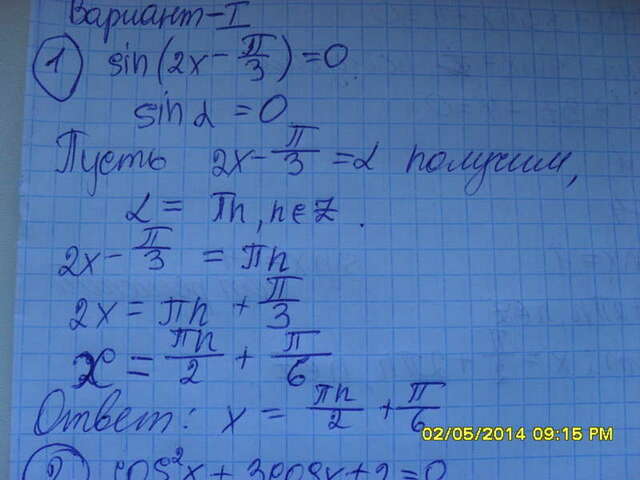 Вариант-I
① sin(2x - π/3) = 0
sin α = 0
Пусть 2x - π/3 = α получим,
α = πn, n∈Z.
2x - π/3 = πn
2x = πn + π/3
x = πn/2 + π/6
Ответ: x = πn/2 + π/6
02/05/2014 09:15 PM
② cos²x + 3cosx + 2 = 0